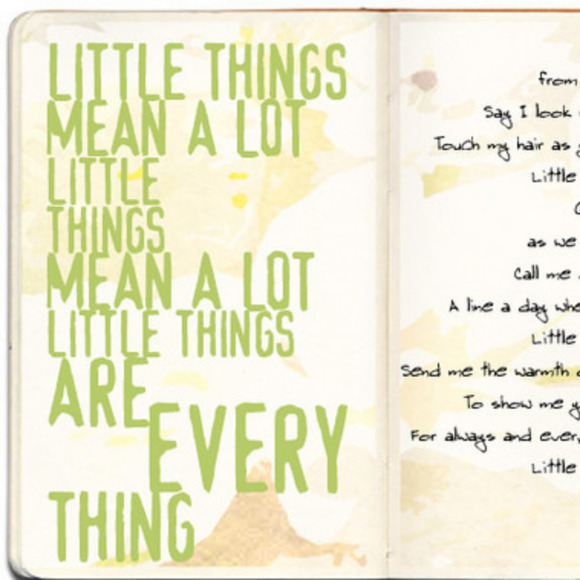 LITTLE THINGS
MEAN A LOT
LITTLE
THINGS
MEAN A LOT
LITTLE THINGS
ARE
EVERY
THING
from
Say I look
Touch my hair as
Little
as we
Call me
A line a day whe
Little
Send me the warmth
To show me y
For always and ever
Little